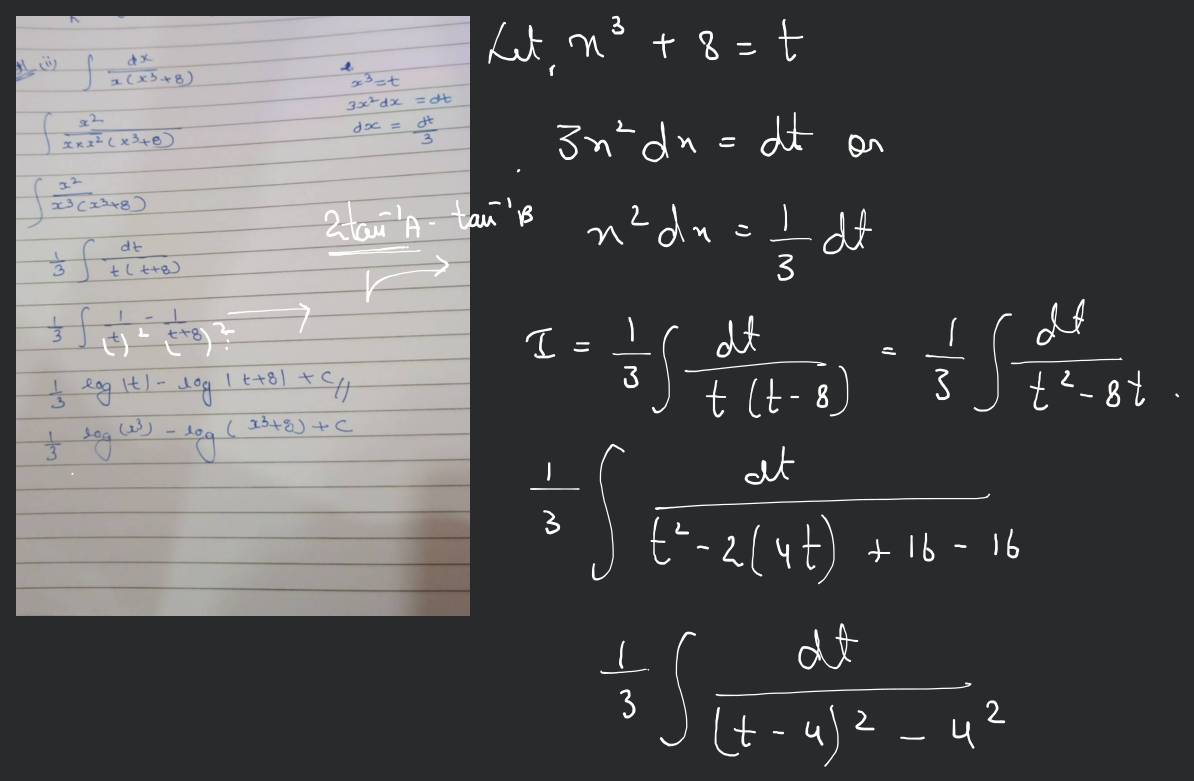 (ii) ∫ dx / x(x³+8)
x³=t
3x²dx = dt
dx = dt/3
∫ x² / x×x²(x³+8)
∫ x² / x³(x³+8)
1/3 ∫ dt / t(t+8)
2tan⁻¹A - tan⁻¹B
1/3 ∫ 1/(t)² - 1/(t+8)²?
1/3 log|t| - log|t+8| + c//
1/3 log(x³) - log(x³+8) + c
Let, x³ + 8 = t
3x²dx = dt or
x²dx = 1/3 dt
I = 1/3 ∫ dt / t(t-8) = 1/3 ∫ dt / t²-8t .
1/3 ∫ dt / t²-2(4t) + 16 - 16
1/3 ∫ dt / (t-4)² - 4²